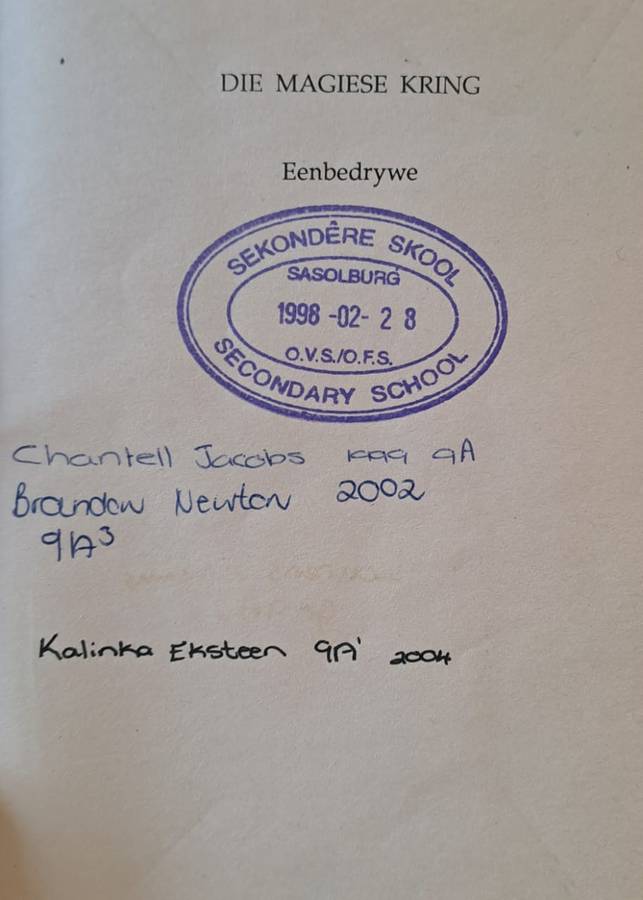 DIE MAGIESE KRING
Eenbedrywe
SEKONDÊRE SKOOL
SASOLBURG
1998 -02- 2 8
O.V.S./O.F.S.
SECONDARY SCHOOL
Chantell Jacobs 1999 9A
Brandon Newton 2002
9A³
Kalinka Eksteen 9A' 2004